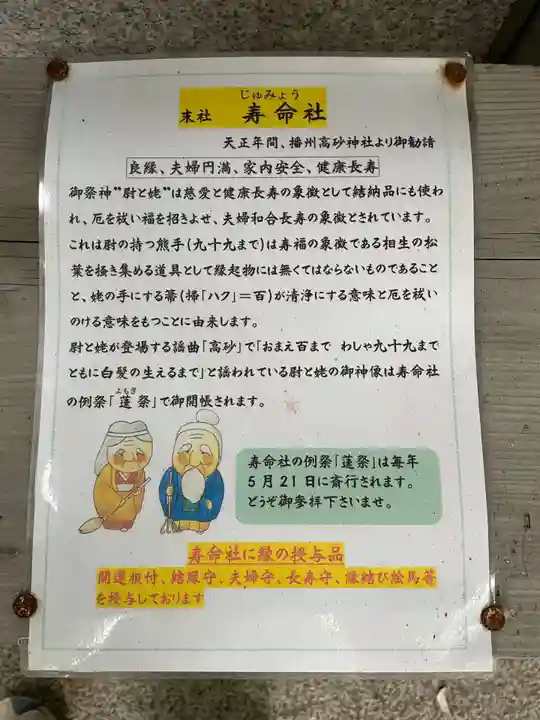 じゅみょう
末社 寿命社
天正年間、播州高砂神社より御勧請
良縁、夫婦円満、家内安全、健康長寿
御祭神"尉と姥"は慈愛と健康長寿の象徴として結納品にも使わ
れ、厄を祓い福を招きよせ、夫婦和合長寿の象徴とされています。
これは尉の持つ熊手(九十九まで)は寿福の象徴である相生の松
葉を掻き集める道具として縁起物には無くてはならないものであること
と、姥の手にする箒(掃「ハク」=百)が清浄にする意味と厄を祓い
のける意味をもつことに由来します。
尉と姥が登場する謡曲「高砂」で「おまえ百まで わしゃ九十九まで
ともに白髪の生えるまで」と謡われている尉と姥の御神像は寿命社
よもぎ
の例祭「蓬祭」で御開帳されます。
寿命社の例祭「蓬祭」は毎年
5月21日に斎行されます。
どうぞ御参拝下さいませ。
寿命社に縁の授与品
開運根付、結縁守、夫婦守、長寿守、縁結び絵馬等
を授与しております